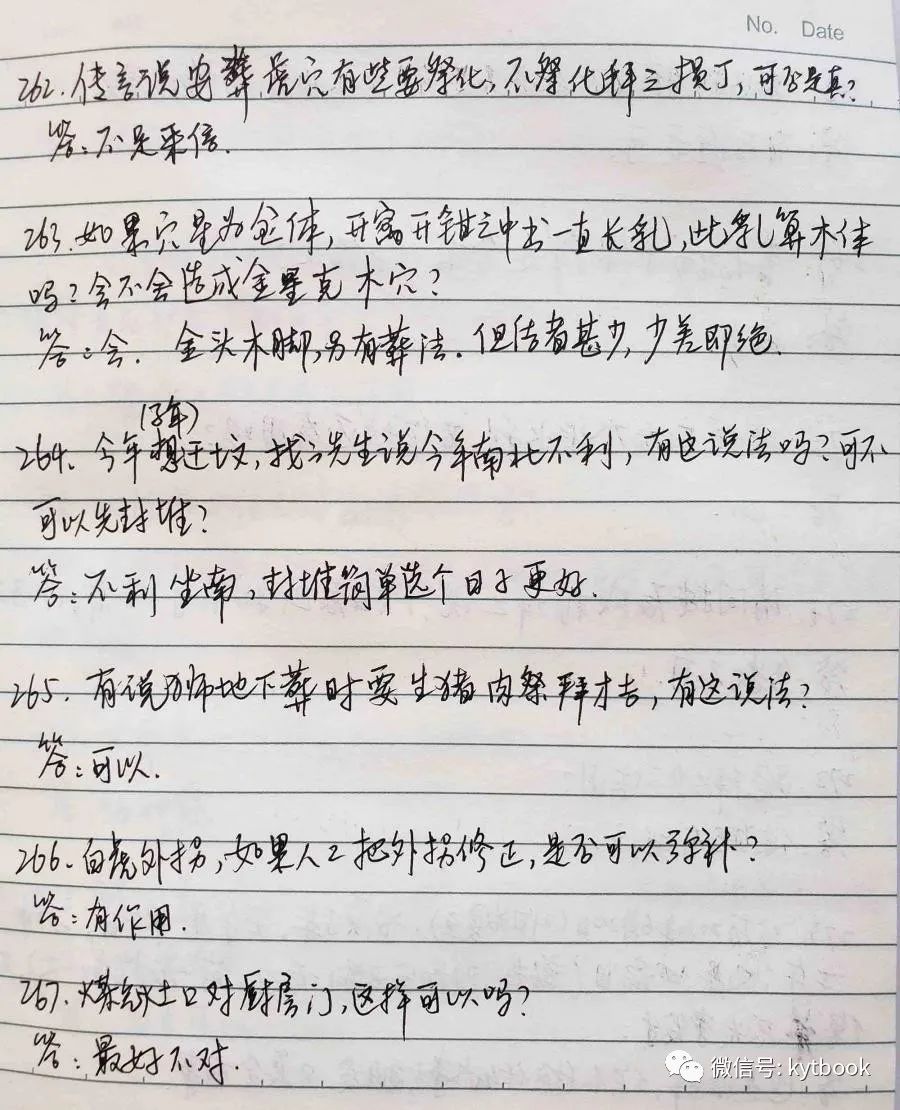 No. Date
262.传言说安葬虎穴有些要祭化,不祭化拜之损丁,可否是真?
答:不足采信.
263.如果穴星为金体,开窝开钳之中出一直长乳,此乳算木体
吗?会不会造成金星克木穴?
答:会.金头木脚,另有葬法.但结者甚少,少差即绝.
(子年)
264.今年想迁坟,找了先生说今年南北不利,有这说法吗?可不
可以先封堆?
答:不利坐南,封堆简单选个日子更好.
265.有说狮地下葬时要生猪肉祭拜才吉,有这说法?
答:可以.
266.白虎外拐,如果人工把外拐修正,是否可以弥补?
答:有作用.
267.煤气灶口对厨房门,这样可以吗?
答:最好不对.
微信号: kytbook